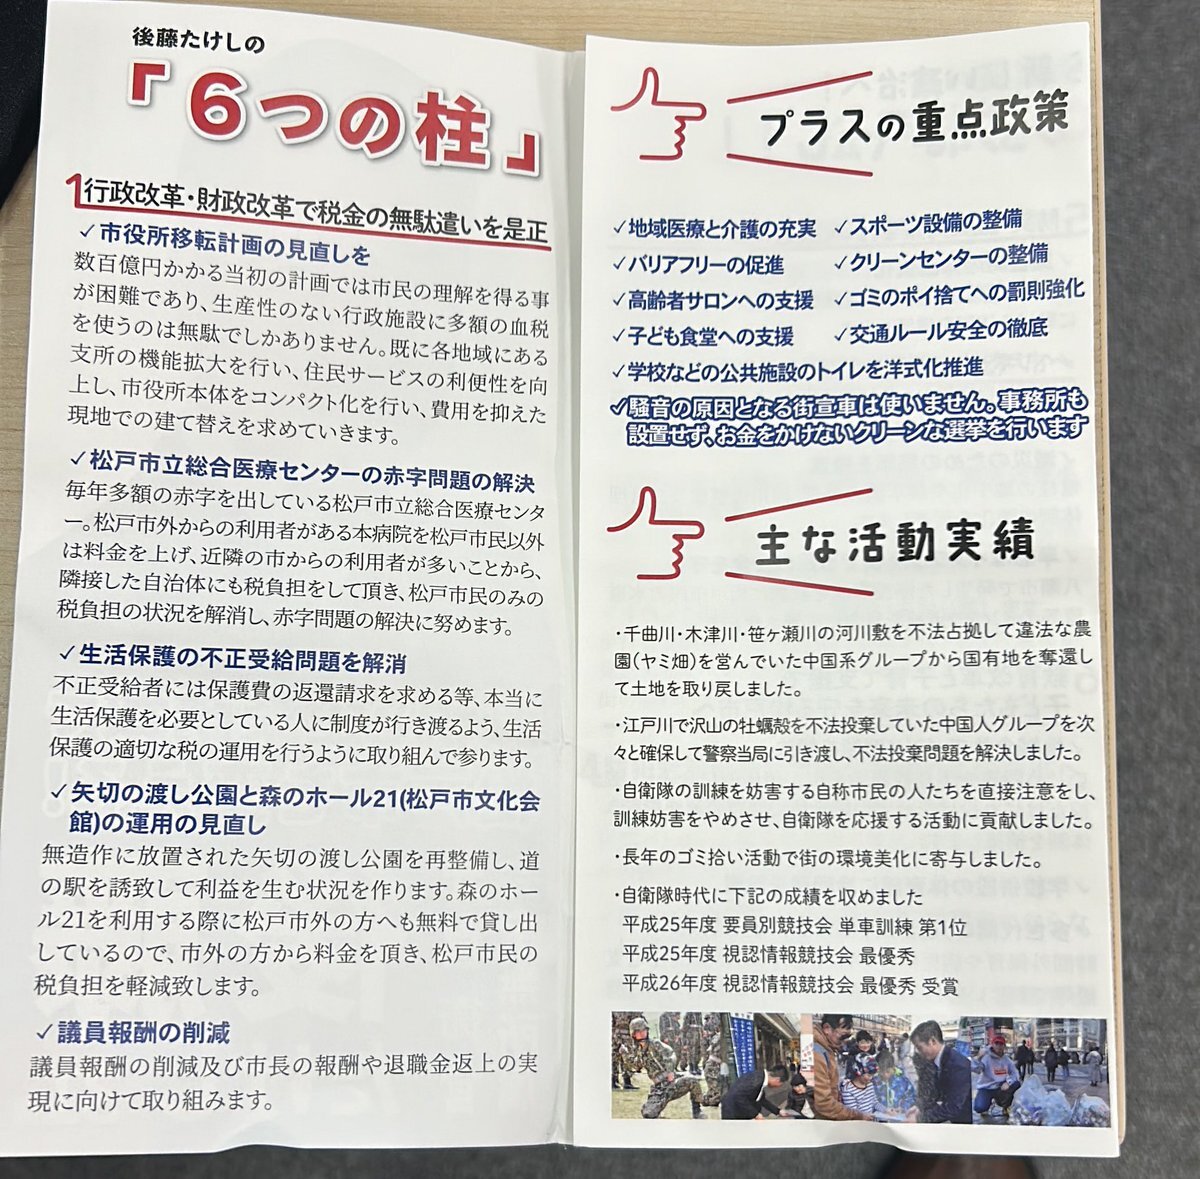 後藤たけしの
「6つの柱」
1行政改革・財政改革で税金の無駄遣いを是正
✓市役所移転計画の見直しを
数百億円かかる当初の計画では市民の理解を得る事
が困難であり、生産性のない行政施設に多額の血税
を使うのは無駄でしかありません。既に各地域にある
支所の機能拡大を行い、住民サービスの利便性を向
上し、市役所本体をコンパクト化を行い、費用を抑えた
現地での建て替えを求めていきます。
✓松戸市立総合医療センターの赤字問題の解決
毎年多額の赤字を出している松戸市立総合医療センタ
ー。松戸市外からの利用者がある本病院を松戸市民以外
は料金を上げ、近隣の市からの利用者が多いことから、
隣接した自治体にも税負担をして頂き、松戸市民のみの
税負担の状況を解消し、赤字問題の解決に努めます。
✓生活保護の不正受給問題を解消
不正受給者には保護費の返還請求を求める等、本当に
生活保護を必要としている人に制度が行き渡るよう、生活
保護の適切な税の運用を行うように取り組んで参ります。
✓矢切の渡し公園と森のホール21(松戸市文化会
館)の運用の見直し
無造作に放置された矢切の渡し公園を再整備し、道
の駅を誘致して利益を生む状況を作ります。森のホー
ル21を利用する際に松戸市外の方へも無料で貸し出
しているので、市外の方から料金を頂き、松戸市民の
税負担を軽減致します。
✓議員報酬の削減
議員報酬の削減及び市長の報酬や退職金返上の実
現に向けて取り組みます。
プラスの重点政策
✓地域医療と介護の充実
✓スポーツ設備の整備
✓バリアフリーの促進
✓クリーンセンターの整備
✓高齢者サロンへの支援
✓ゴミのポイ捨てへの罰則強化
✓子ども食堂への支援
✓交通ルール安全の徹底
✓学校などの公共施設のトイレを洋式化推進
✓騒音の原因となる街宣車は使いません。事務所も
設置せず、お金をかけないクリーンな選挙を行います
主な活動実績
・千曲川・木津川・笹ヶ瀬川の河川敷を不法占拠して違法な農
園(ヤミ畑)を営んでいた中国系グループから国有地を奪還し
て土地を取り戻しました。
・江戸川で沢山の牡蠣殻を不法投棄していた中国人グループを次
々と確保して警察当局に引き渡し、不法投棄問題を解決しました。
・自衛隊の訓練を妨害する自称市民の人たちを直接注意をし、
訓練妨害をやめさせ、自衛隊を応援する活動に貢献しました。
・長年のゴミ拾い活動で街の環境美化に寄与しました。
・自衛隊時代に下記の成績を収めました
平成25年度 要員別競技会 単車訓練 第1位
平成25年度 視認情報競技会 最優秀
平成26年度 視認情報競技会 最優秀 受賞